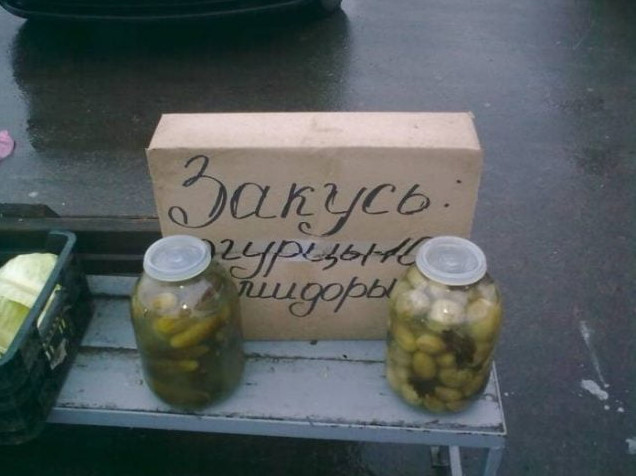 Закусь:
огурцы по
мидоры